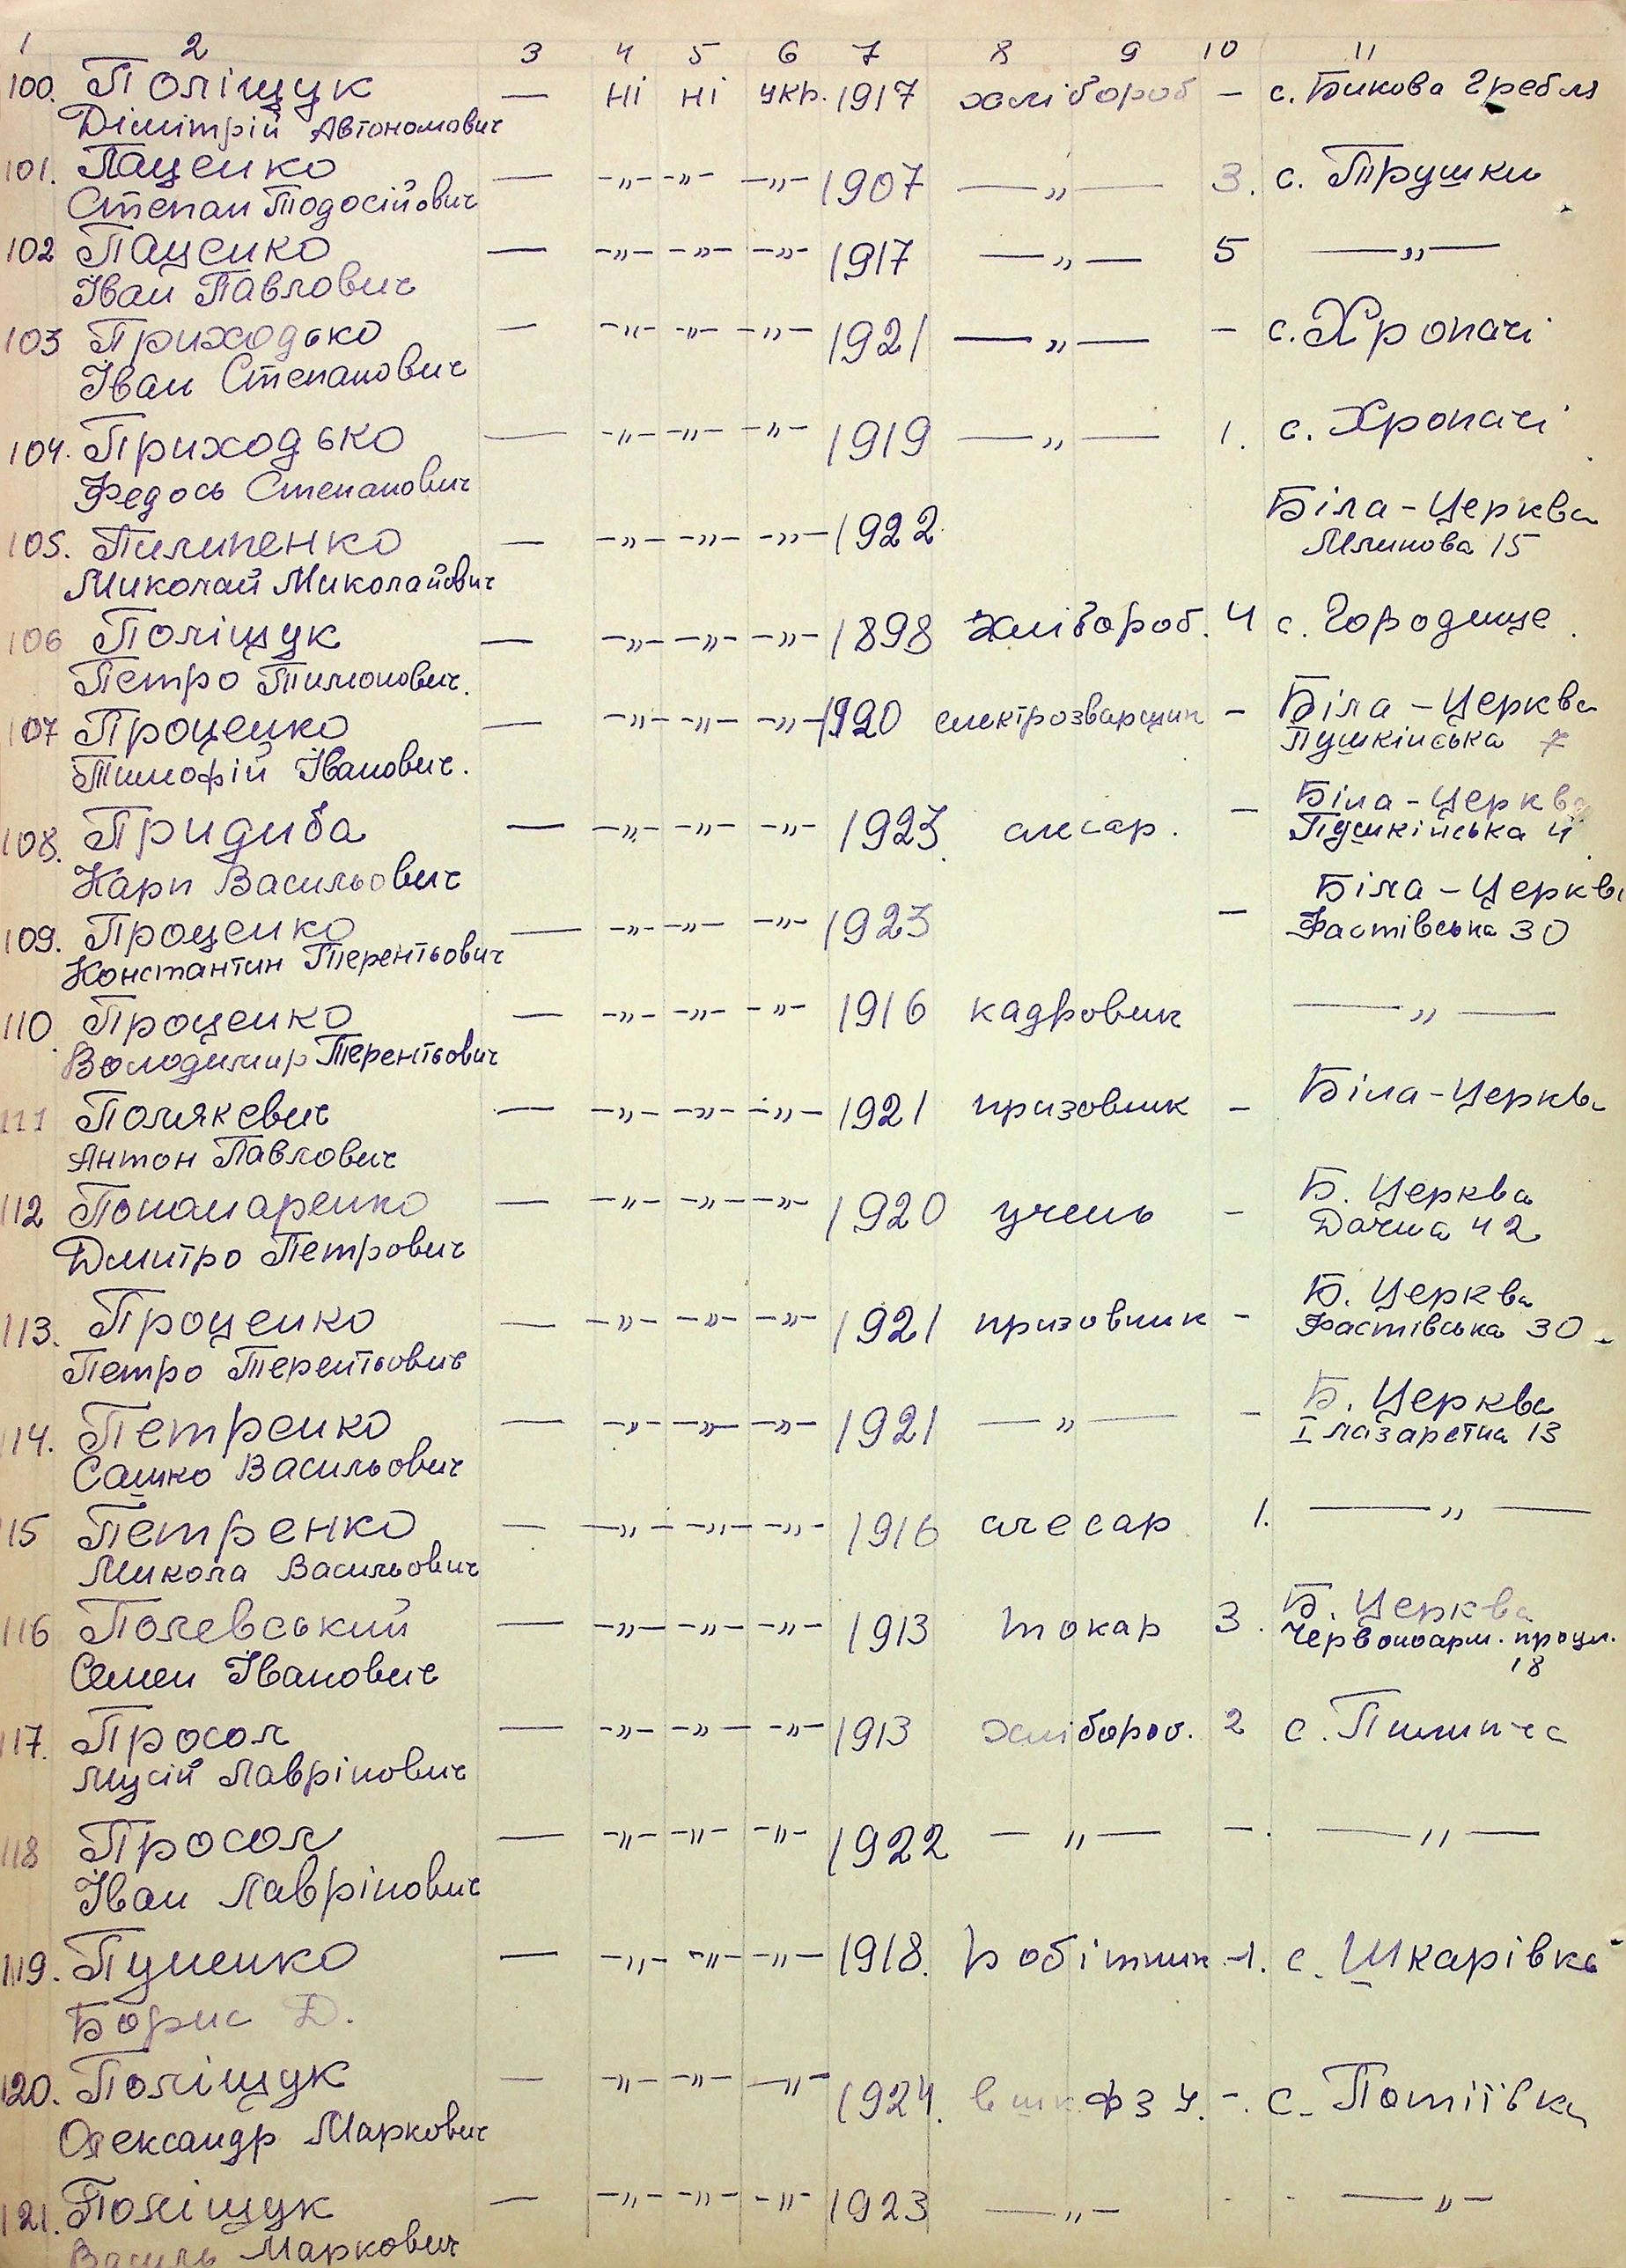 1 2 3 4 5 6 7 8 9 10 11
100. Поліщук — ні ні укр. 1917 хлібороб — с. Бикова Гребля
Дімітрій Автономович
101. Паценко — -„- -„- -„- 1907 —„— 3. с. Трушки
Степан Тодосійович
102 Паценко — -„- -„- -„- 1917 —„— 5 —„—
Іван Павлович
103 Приходько — -„- -„- -„- 1921 —„— - с. Хропачі
Іван Степанович
104. Приходько — -„- -„- -„- 1919 —„— 1. с. Хропачі
Федось Степанович
105. Пилипенко — -„- -„- -„- 1922 Біла-Церква
Миколай Миколайович Млинова 15
106 Поліщук — -„- -„- -„- 1898 Хлібороб. 4 с. Городище
Петро Тимонович.
107 Проценко — -„- -„- -„- 1920 електрозварщик - Біла-Церква
Тимофій Іванович. Пушкінська 7
108. Придиба — -„- -„- -„- 1923 слюсар. - Біла-Церква
Карп Васильович Пушкінська 4
109. Проценко — -„- -„- -„- 1923 - Біла-Церква
Константин Терентьович Фастівська 30
110 Проценко — -„- -„- -„- 1916 кадровик —„—
Володимир Терентьович
111 Полякевич — -„- -„- -„- 1921 призовник - Біла-Церква
Антон Павлович
112 Пономаренко — -„- -„- -„- 1920 учень - Б. Церква
Дмитро Петрович Дачна 42
113. Проценко — -„- -„- -„- 1921 призовник - Б. Церква
Петро Терентьович Фастівська 30
114. Петренко — -„- -„- -„- 1921 —„— - Б. Церква
Сашко Васильович I лазаретна 13
115 Петренко — -„- -„- -„- 1916 слесар 1. —„—
Микола Васильович
116 Полевський — -„- -„- -„- 1913 токар 3. Б. Церква
Семен Іванович Червоноарм. пров. 18
117. Просол — -„- -„- -„- 1913 хлібороб. 2 с. Пилипча
Мусій Лаврінович
118 Просол — -„- -„- -„- 1922 —„— - —„—
Іван Лаврінович
119. Пуненко — -„- -„- -„- 1918. робітник 1. с. Шкарівка
Борис Д.
120. Поліщук — -„- -„- -„- 1924. в шк. ФЗУ. - с. Потіївка
Олександр Маркович
121. Поліщук — -„- -„- -„- 1923 —„— - —„—
Василь Маркович